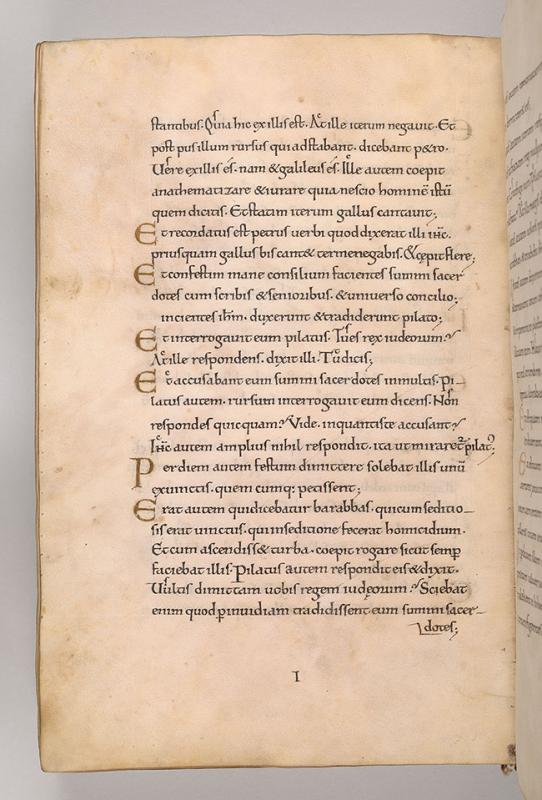 stantibus. Quia hic ex illis est. At ille iterum negauit. Et
post pusillum rursus qui adstabant. dicebant p&ro.
Uere ex illis es̄. nam & galileus es̄. Ille autem coepit
anathematizare & iurare quia nescio hominē istū
quem dicitis. Et statim iterum gallus cantauit;
Et recordatus est petrus uerbi quod dixerat illi ih̄c.
priusquam gallus bis cant& ter me negabis. & cępit flere;
Et confestim mane consilium facientes summi sacer
dotes cum scribis & senioribus. & uniuerso concilio;
uincientes ih̄m. duxerunt & tradiderunt pilato;
Et interrogauit eum pilatus. Tu es rex iudeorum?
At ille respondens. dixit illi. Tu dicis;
Et accusabant eum summi sacerdotes in multis. Pi-
latus autem. rursum interrogauit eum dicens. Non
respondes quicquam? Vide. in quantis te accusant?
Ih̄c autem amplius nihil respondit. ita ut miraret᷒ pilat᷒;
Per diem autem festum dimittere solebat illis unū
ex uinctis. quem cumq; petissent;
Erat autem qui dicebatur barabbas. qui cum seditio-
sis erat uinctus. qui in seditione fecerat homicidium.
Et cum ascendiss& turba. coepit rogare sicut semp̄
faciebat illis. Pilatus autem respondit eis & dixit.
Uultis dimittam uobis regem iudęorum? Sciebat
enim quod ꝑ inuidiam tradidissent eum summi sacer-
dotes;
I